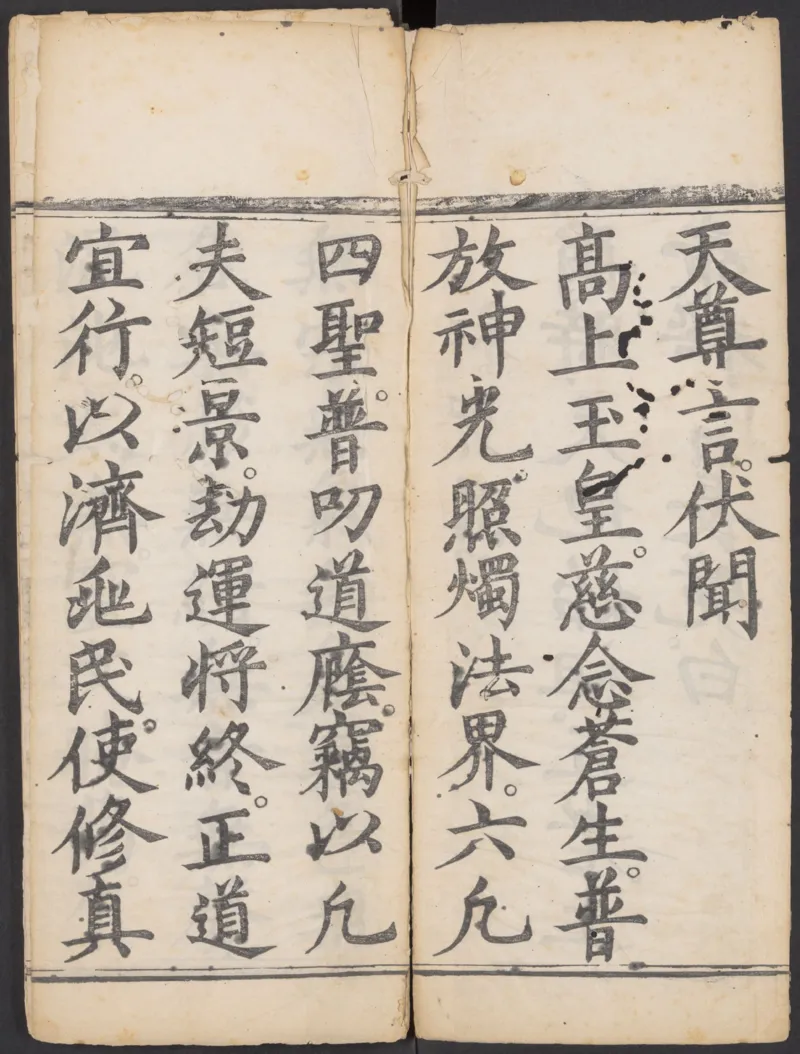 天尊言。伏聞
髙上玉皇。慈念蒼生。普
放神光。照燭法界。六凡
四聖。普叨道廕。竊以凡
夫短景。劫運将終。正道
宜行。以濟兆民。使修真